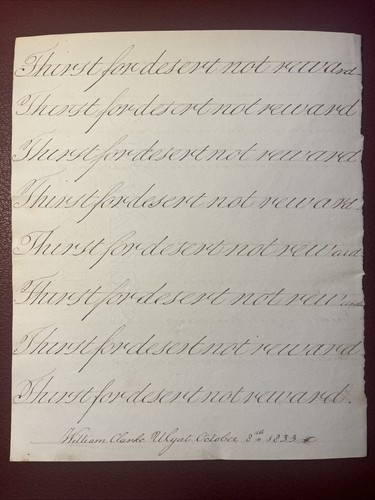 Thirst for desert not reward
Thirst for desert not reward
Thirst for desert not reward.
Thirst for desert not reward.
Thirst for desert not reward
Thirst for desert not reward
Thirst for desert not reward
Thirst for desert not reward.
William Clarke Ulyat October 8th 1833